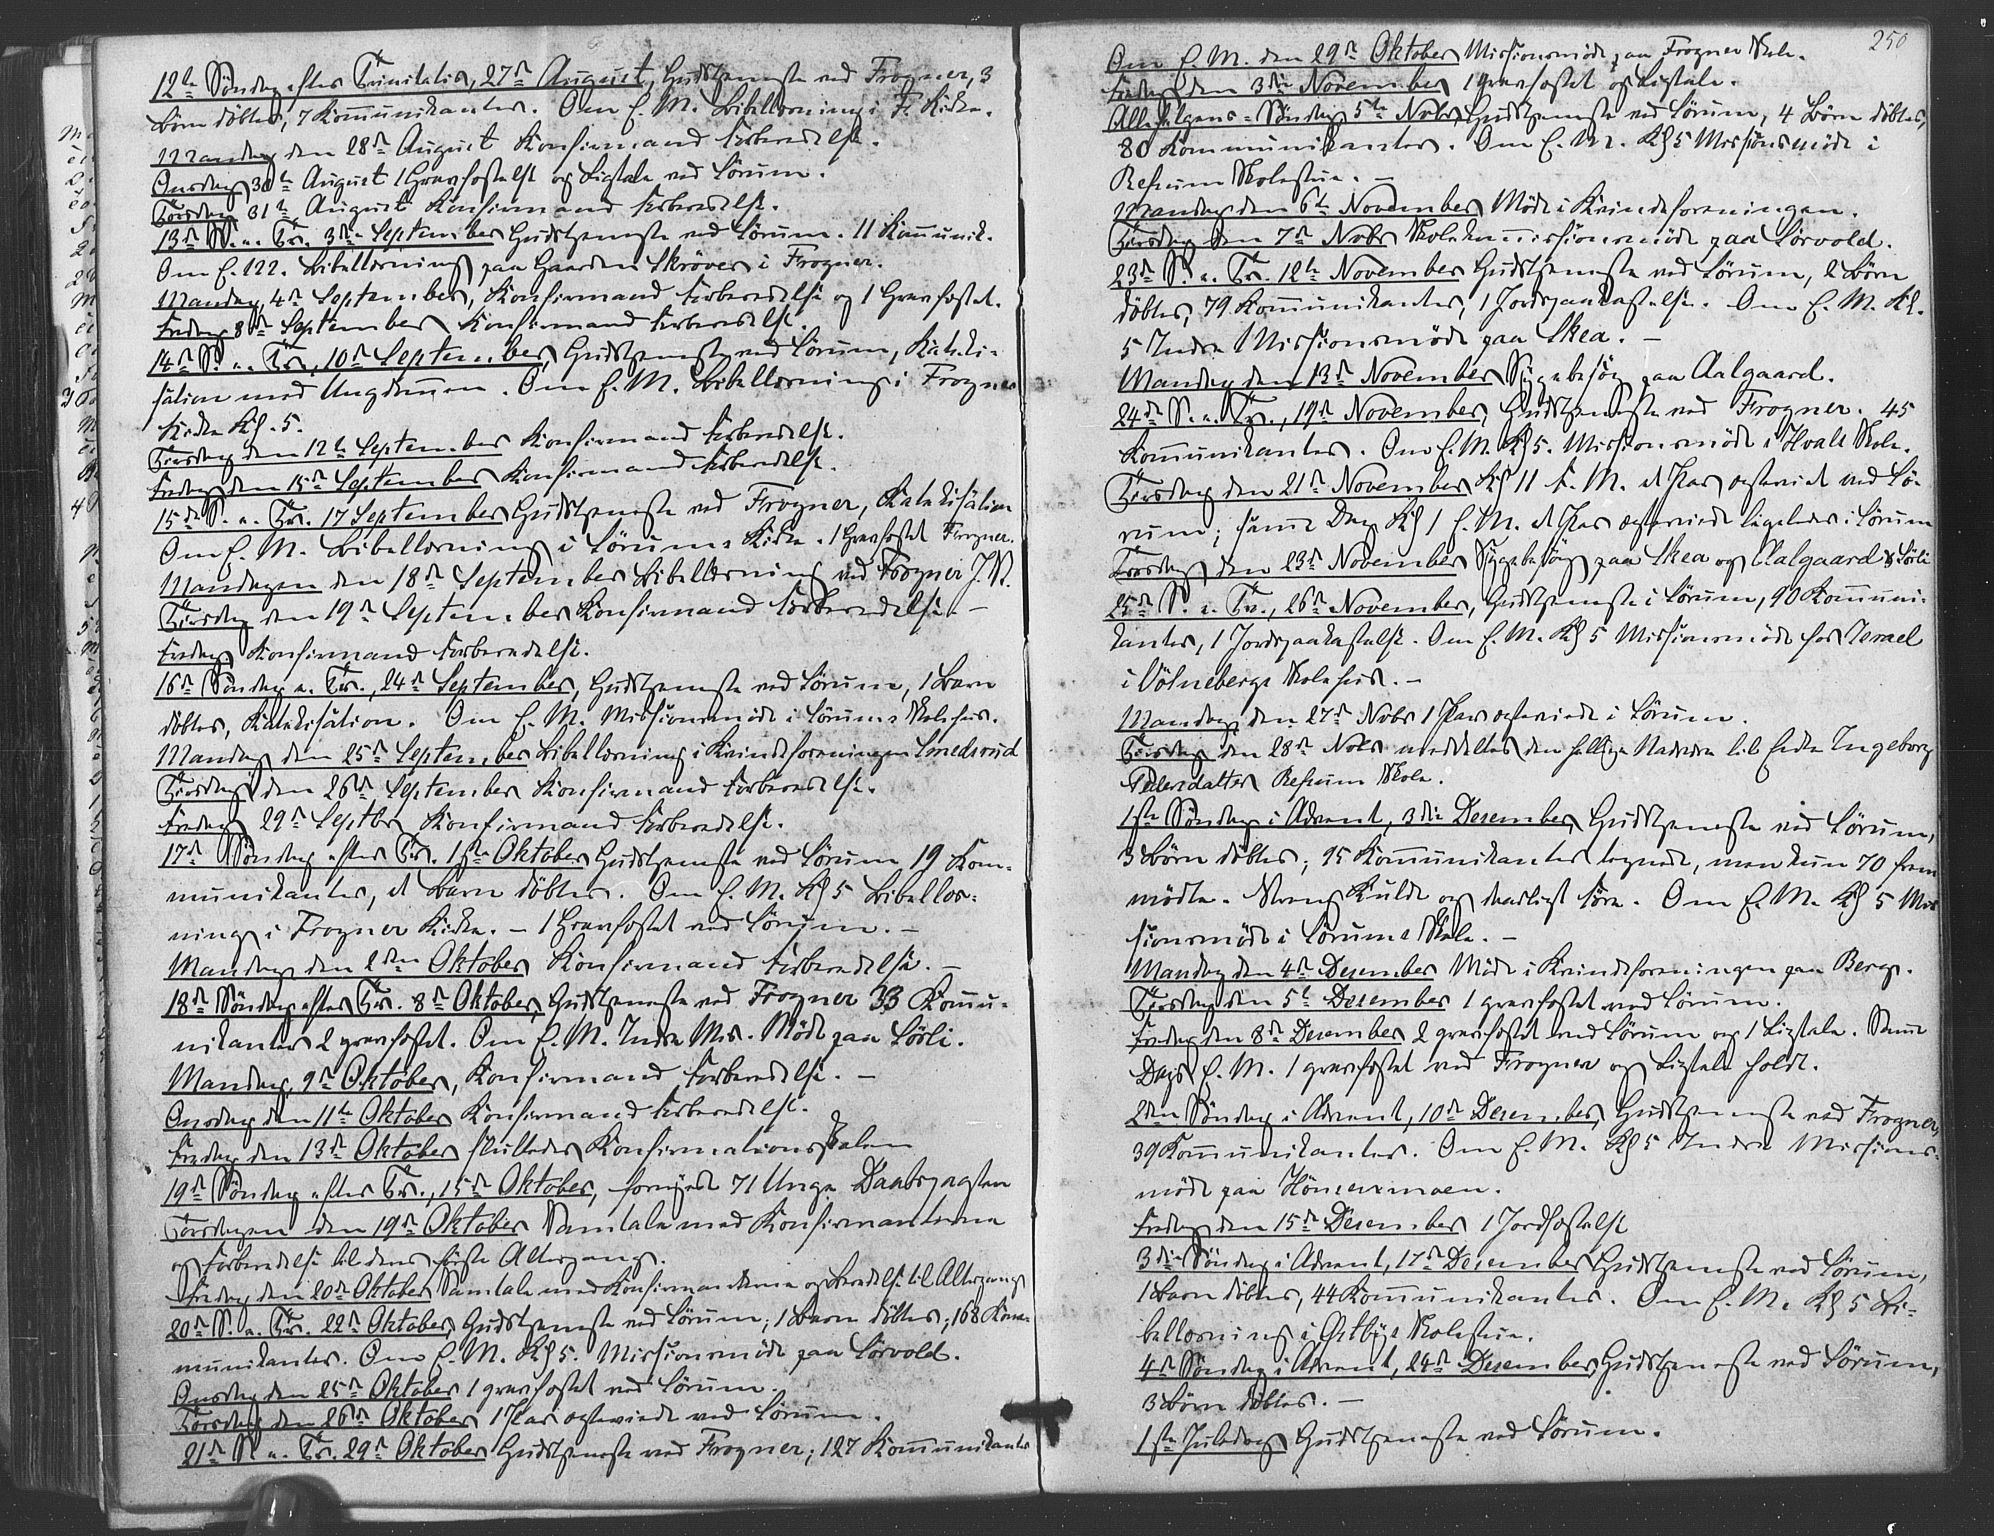 12te Søndag efter Trinitatis, 27de August, Gudstjeneste ved Frogner, 3
Børn døbtes, 7 Kommunikanter. Om E. M. Bibellæsning i Fr. Kirke.
Mandag den 28de August Konfirmand Forberedelse.
Onsdag 30te August 1 Gravfæstelse og Ligtale ved Sørum.
Torsdag 31te August Konfirmand Forberedelse.
13de S. e. Tr. 3die September Gudstjeneste ved Sørum. 11 Kommunik.
Om E. M. Bibellæsning paa Gaarden Skrøver i Frogner.
Mandag, 4de September, Konfirmand Forberedelse og 1 Gravfæstet.
Fredag 8de September Konfirmand Forberedelse.
14de S. e. Tr., 10de September, Gudstjeneste ved Sørum, Kateki-
sation med Ungdommen. Om E. M. Bibellæsning i Frogner
Kirke Kl. 5.
Tirsdag den 12te September Konfirmand Forberedelse.
Fredag den 15de September Konfirmand Forberedelse.
15de S. e. Tr. 17 September Gudstjeneste ved Frogner, Katekisation
Om E. M. Bibellæsning i Sørums Kirke. 1 Gravfæstet Frogner.
Mandagen den 18de September Bibellæsning ved Frogner J. St.
Tirsdag den 19de September Konfirmand Forberedelse. —
Fredag Konfirmand Forberedelse.
16de Søndag e. Tr., 24de September, Gudstjeneste ved Sørum, 1 Barn
døbtes, Katekisation. Om E. M. Missionsmøde i Sørums Skolehus.
Mandag den 25de September Bibellæsning i Kvindeforeningen Smedsrud
Tirsdag den 26de September Konfirmand Forberedelse.
Fredag 29de Septbr Konfirmand Forberedelse.
17de Søndag efter Tr. 1ste Oktober Gudstjeneste ved Sørum 19 Kom-
munikanter, et Barn døbtes. Om E. M. Kl 5 Bibellæs-
ning i Frogner Kirke. — 1 Gravfæstet ved Sørum. —
Mandag den 2den Oktober Konfirmand Forberedelse. —
18de Søndag efter Tr. 8de Oktober, Gudstjeneste ved Frogner 33 Kommu-
nikanter 2 gravfæstet. Om E. M. Indre Mis. Møde paa Sørli.
Mandag, 9de Oktober, Konfirmand Forberedelse. —
Onsdag den 11te Oktober Konfirmand Forberedelse.
Fredag den 13de Oktober stilledes Konfirmationstalen
19de Søndag efter Tr., 15de Oktober, fornyede 71 Unge Daabspagten
Torsdagen den 19de Oktober Samtale med Konfirmanterne
og Forberedelse til deres første Altergang.
Fredag den 20de Oktober Samtale med Konfirmanderne og Beredelse til Altergang
20de S. e. Tr. 22de Oktober, Gudstjeneste ved Sørum; 1 Barn døbtes; 168 Kom-
munikanter. Om E. M. Kl 5. Missionsmøde paa Sørvold.
Onsdag den 25de Oktober 1 gravfæstet ved Sørum.
Torsdag den 26de Oktober 1 Par ægteviede ved Sørum.
21de S. e. Tr. 29de Oktober Gudstjeneste ved Frogner; 127 Kommunikanter
250
Om E. M. den 29de Oktober Missionsmøde paa Frogner Skole.
Fredag den 3die November 1 gravfæstet og Ligtale.
Allehelgens-Søndag 5te Novbr, Gudstjeneste ved Sørum, 4 Børn døbtes,
80 Kommunikanter. Om E. M. Kl 5 Missionsmøde i
Refsum Skolestue. —
Mandag den 6te November Møde i Kvindeforeningen.
Tirsdag den 7de Novbr Skolekommissionsmøde paa Sørvold.
23de S. e. Tr. 12te November Gudstjeneste ved Sørum, 2 Børn
døbtes, 79 Kommunikanter, 1 Jordpaakastelse. Om E. M. Kl.
5 Indre Missionsmøde paa Skea. —
Mandag den 13de November Sygebesøg paa Aalgaard.
24de S. e. Tr., 19de November, Gudstjeneste ved Frogner. 45
Kommunikanter. Om E. M. Kl 5. Missionsmøde i Hvals Skole.
Tirsdag den 21de November Kl 11 F. M. et Par ægteviet ved Sø-
rum; samme Dag Kl 1 E. M. et Par ægteviede ligeledes i Sørum
Torsdag den 23de November Sygebesøg paa Skea og Aalgaard & Sørli
25de S. e. Tr., 26de November, Gudstjeneste i Sørum, 90 Kommuni-
kanter, 1 Jordpaakastelse. Om E. M. Kl 5 Missionsmøde for Israel
i Vølnebergs Skolehus. —
Mandag den 27de Novbr 1 Par ægteviede i Sørum.
Tirsdag den 28de Novbr meddeltes den hellige Nadvere til Enke Ingeborg
Pedersdatter Refsum Skole.
1ste Søndag i Advent, 3die Desember, Gudstjeneste ved Sørum,
3 Børn døbtes; 95 Kommunikanter tegnede, men kun 70 frem
mødte. Streng Kulde og daarligt Føre. Om E. M. Kl 5 Mis
sionsmøde i Sørums Skole. —
Mandag den 4de Desember Møde i Kvindeforeningen paa Berg.
Tirsdag den 5te Desember 1 gravfæstet ved Sørum.
Fredag den 8de Desember 2 gravfæstet ved Sørum og 1 Ligtale. Samme
Dags E. M. 1 gravfæstet ved Frogner og Ligtale holdt.
2den Søndag i Advent, 10de Desember, Gudstjeneste ved Frogner,
39 Kommunikanter. Om E. M. Kl 5 Indre Missions-
møde paa Hønsenmoen.
Fredag den 15de Desember 1 Jordfæstelse
3die Søndag i Advent, 17de Desember Gudstjeneste ved Sørum,
1 Barn døbtes, 44 Kommunikanter. Om E. M. Kl 5 Bi-
bellæsning i Østbys Skolestue.
4de Søndag i Advent, 24de Desember, Gudstjeneste ved Sørum,
3 Børn døbtes. —
1ste Juledag Gudstjeneste ved Sørum.